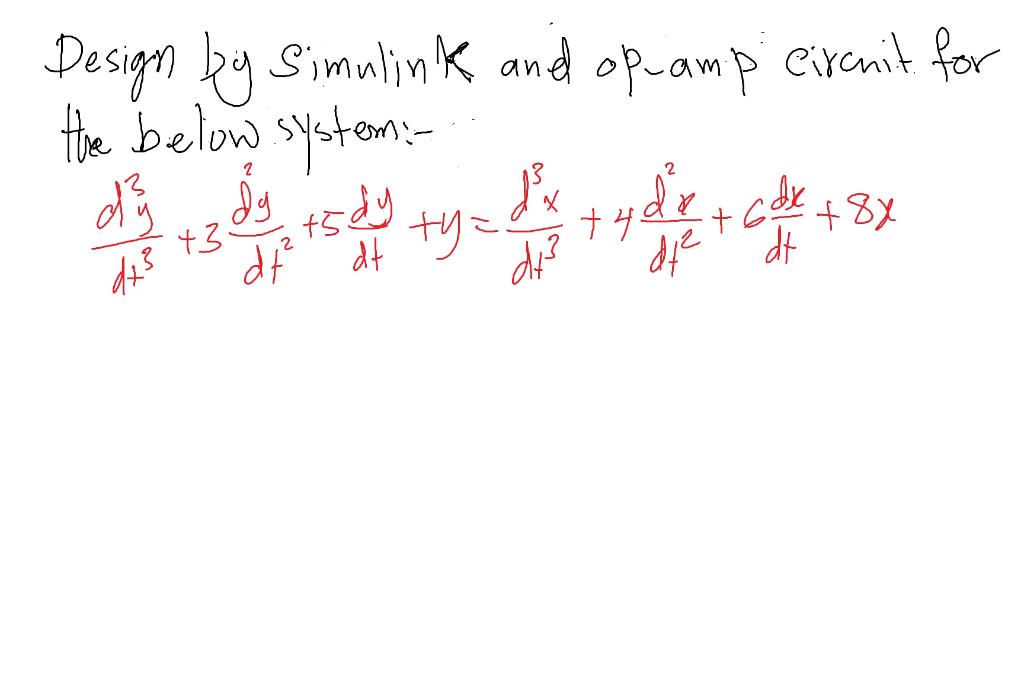 Design by Simulink and op-amp circuit for
the below system:-
d³y/dt³ +3 d²y/dt² +5 dy/dt +y = d³x/dt³ + 4 d²x/dt² + 6 dx/dt + 8x